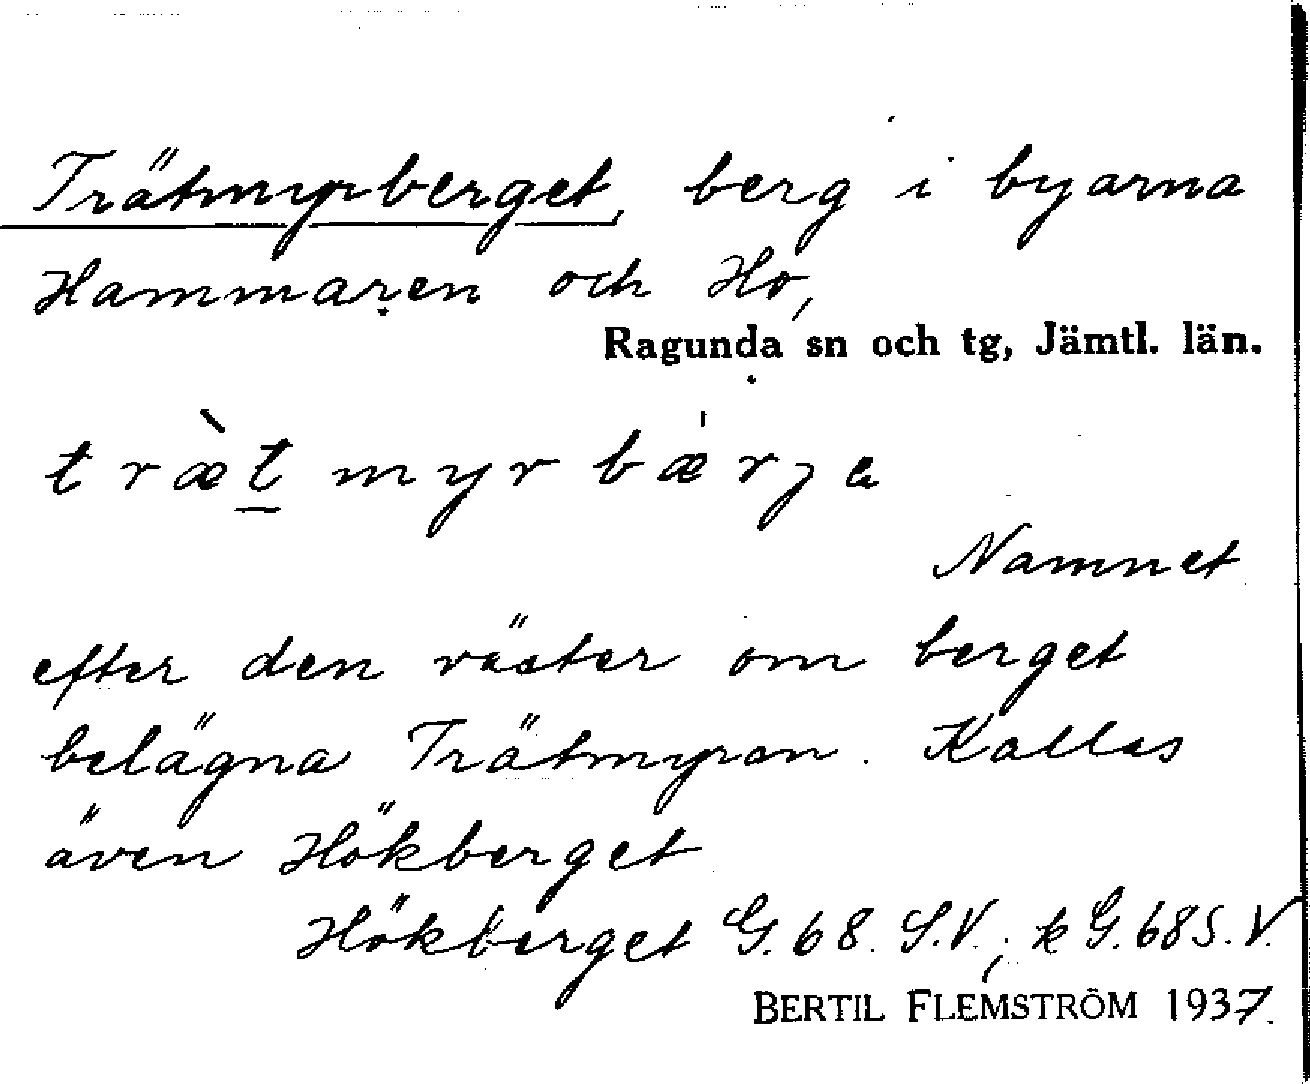 Trätmyrberget, berg i byarna
Hammaren och Ho,
Ragunda sn och tg, Jämtl. län.
træ̀t myrbæ̍rja
Namnet
efter den väster om berget
belägna Trätmyran. Kallas
även Hökberget
Hökberget G. 68. S.V.; k G. 68 S.V.
BERTIL FLEMSTRÖM 1937.